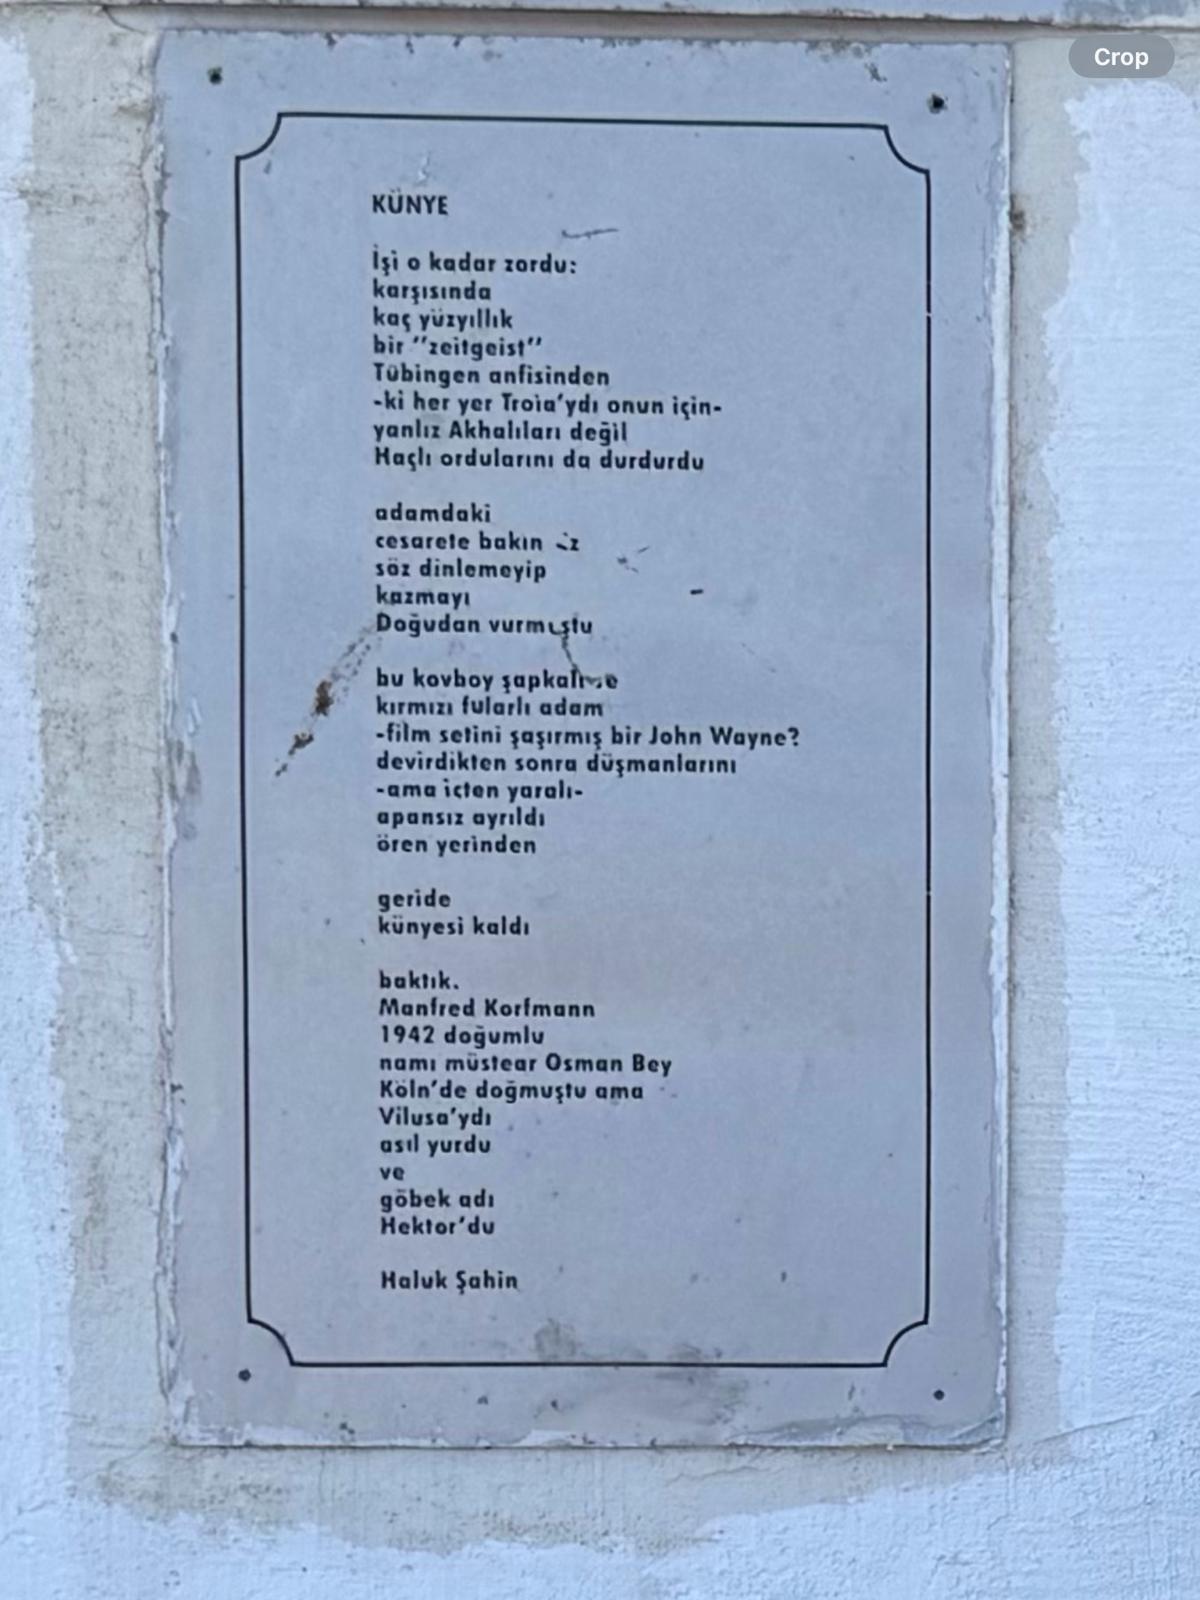 Crop
KÜNYE
İşi o kadar zordu:
karşısında
kaç yüzyıllık
bir "zeitgeist"
Tübingen anfisinden
-ki her yer Troia'ydı onun için-
yanlız Akhalıları değil
Haçlı ordularını da durdurdu
adamdaki
cesarete bakın
söz dinlemeyip
kazmayı
Doğudan vurmuştu
bu kovboy şapkalı ve
kırmızı fularlı adam
-film setini şaşırmış bir John Wayne?
devirdikten sonra düşmanlarını
-ama içten yaralı-
apansız ayrıldı
ören yerinden
geride
künyesi kaldı
baktık.
Manfred Korfmann
1942 doğumlu
namı müstear Osman Bey
Köln'de doğmuştu ama
Vilusa'ydı
asıl yurdu
ve
göbek adı
Hektor'du
Haluk Şahin